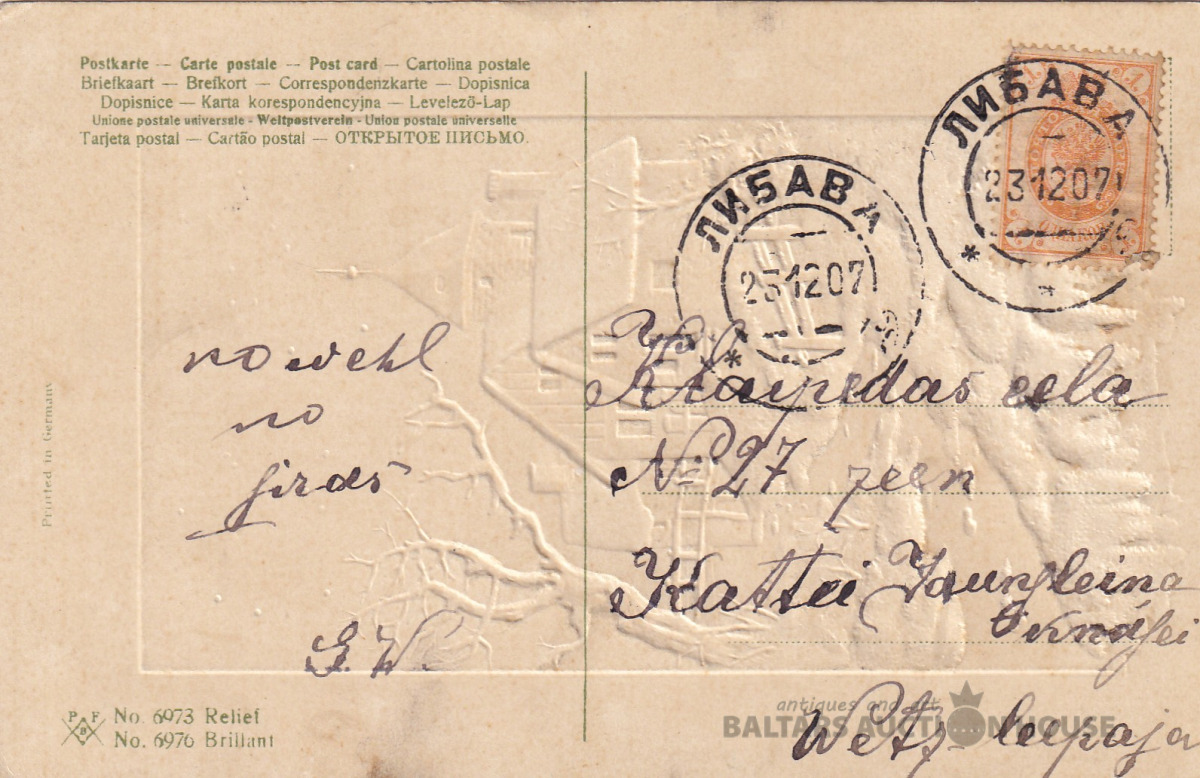 Postkarte — Carte postale — Post card — Cartolina postale
Briefkaart — Brefkort — Correspondenzkarte — Dopisnica
Dopisnice — Karta korespondencyjna — Levelező-Lap
Unione postale universale - Weltpostverein - Union postale universelle
Tarjeta postal — Cartão postal — ОТКРЫТОЕ ПИСЬМО.
ЛИБАВА
23 12 07
ЛИБАВА
23 12 07
nowehl
no
sirds
G. W.
Klaipedas eela
№ 27 zeen
Kattei Jaungleina
Wetz leepaja
Printed in Germany
P F B
No. 6973 Relief
No. 6976 Brillant
antiques and art
BALTARS AUCTION HOUSE